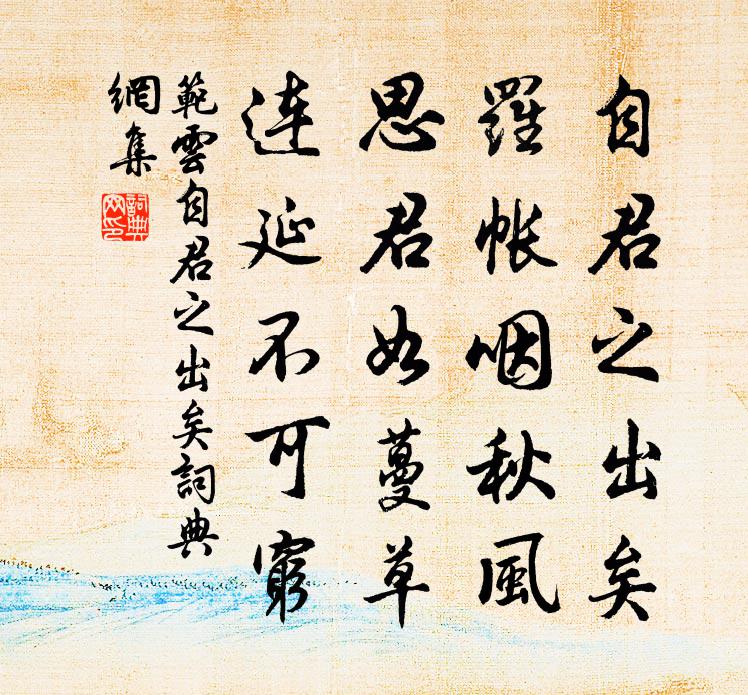 自君之出矣
羅帳咽秋風
思君如蔓草
連延不可窮
範雲自君之出矣詞典
網集
詞典
网印